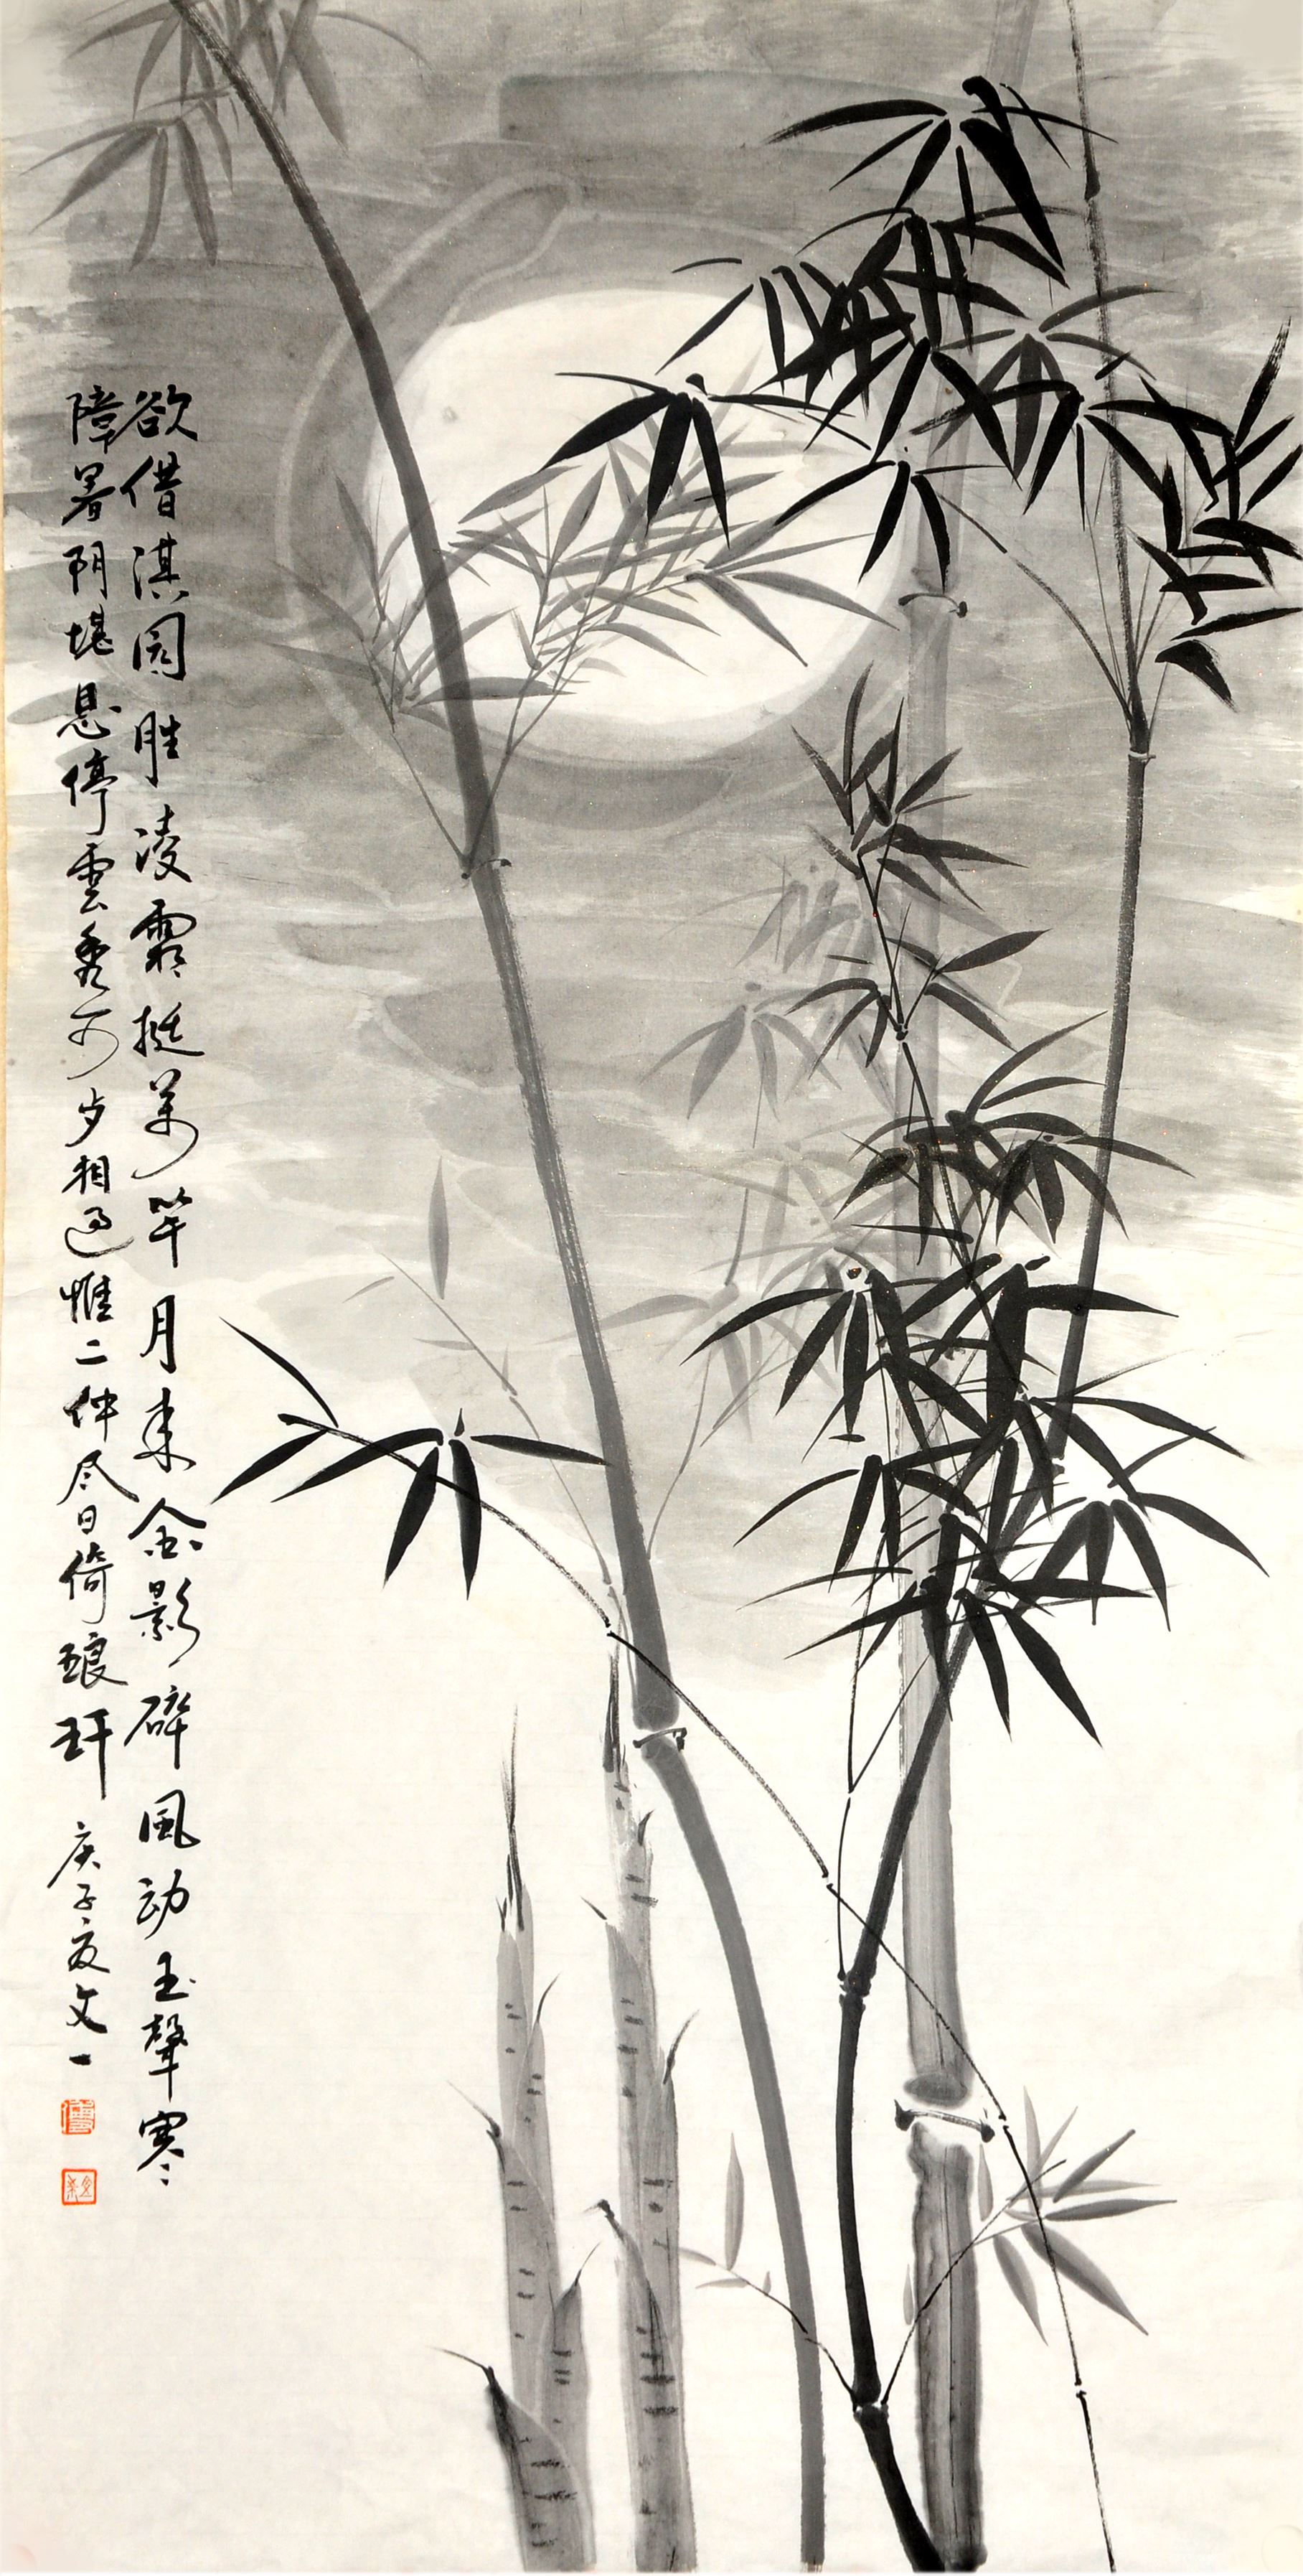 欲借淇园胜凌霜挺万竿月来金影碎風动玉聲寒
障暑阴堪息停雲秀可歺相过惟二仲尽日倚琅玕庚子夏文一